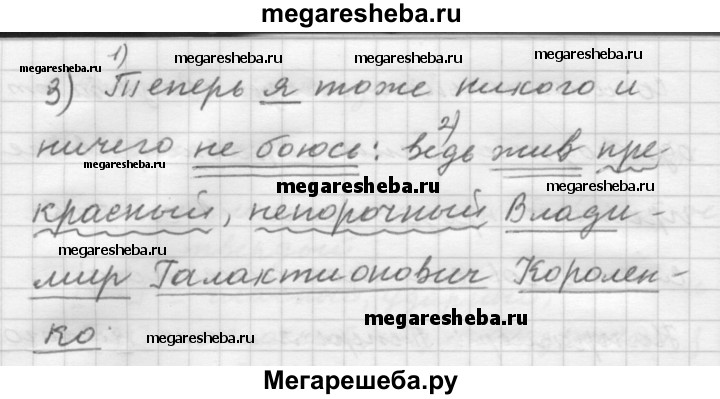 megaresheba.ru
1)
megaresheba.ru megaresheba.ru
megaresheba.ru
3) Теперь я тоже никого и
2)
ничего не боюсь: ведь жив пре-
megaresheba.ru megaresheba.ru
megaresheba.ru
красный, непорочный Влади-
megaresheba.ru
мир Галактионович Королен-
megaresheba.ru
ко.
megaresheba.ru megaresheba.ru
Мегарешеба.ру